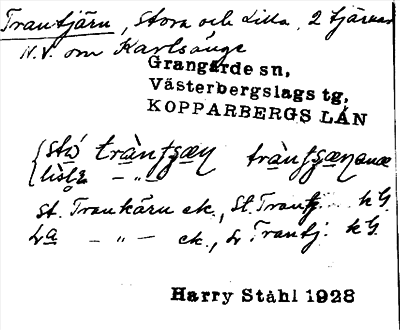 Trantjärn, Stora och Lilla, 2 tjärnar
N.V. om Karlsänge
Grangärde sn,
Västerbergslags tg,
KOPPARBERGS LÄN
sto̵ trȧntʃæn trȧntʃænanæ
lisḷa – " –
St. Trankärn ek., St. Trantj. kG.
La – " – ek., L. Trantj. kG.
Harry Ståhl 1928